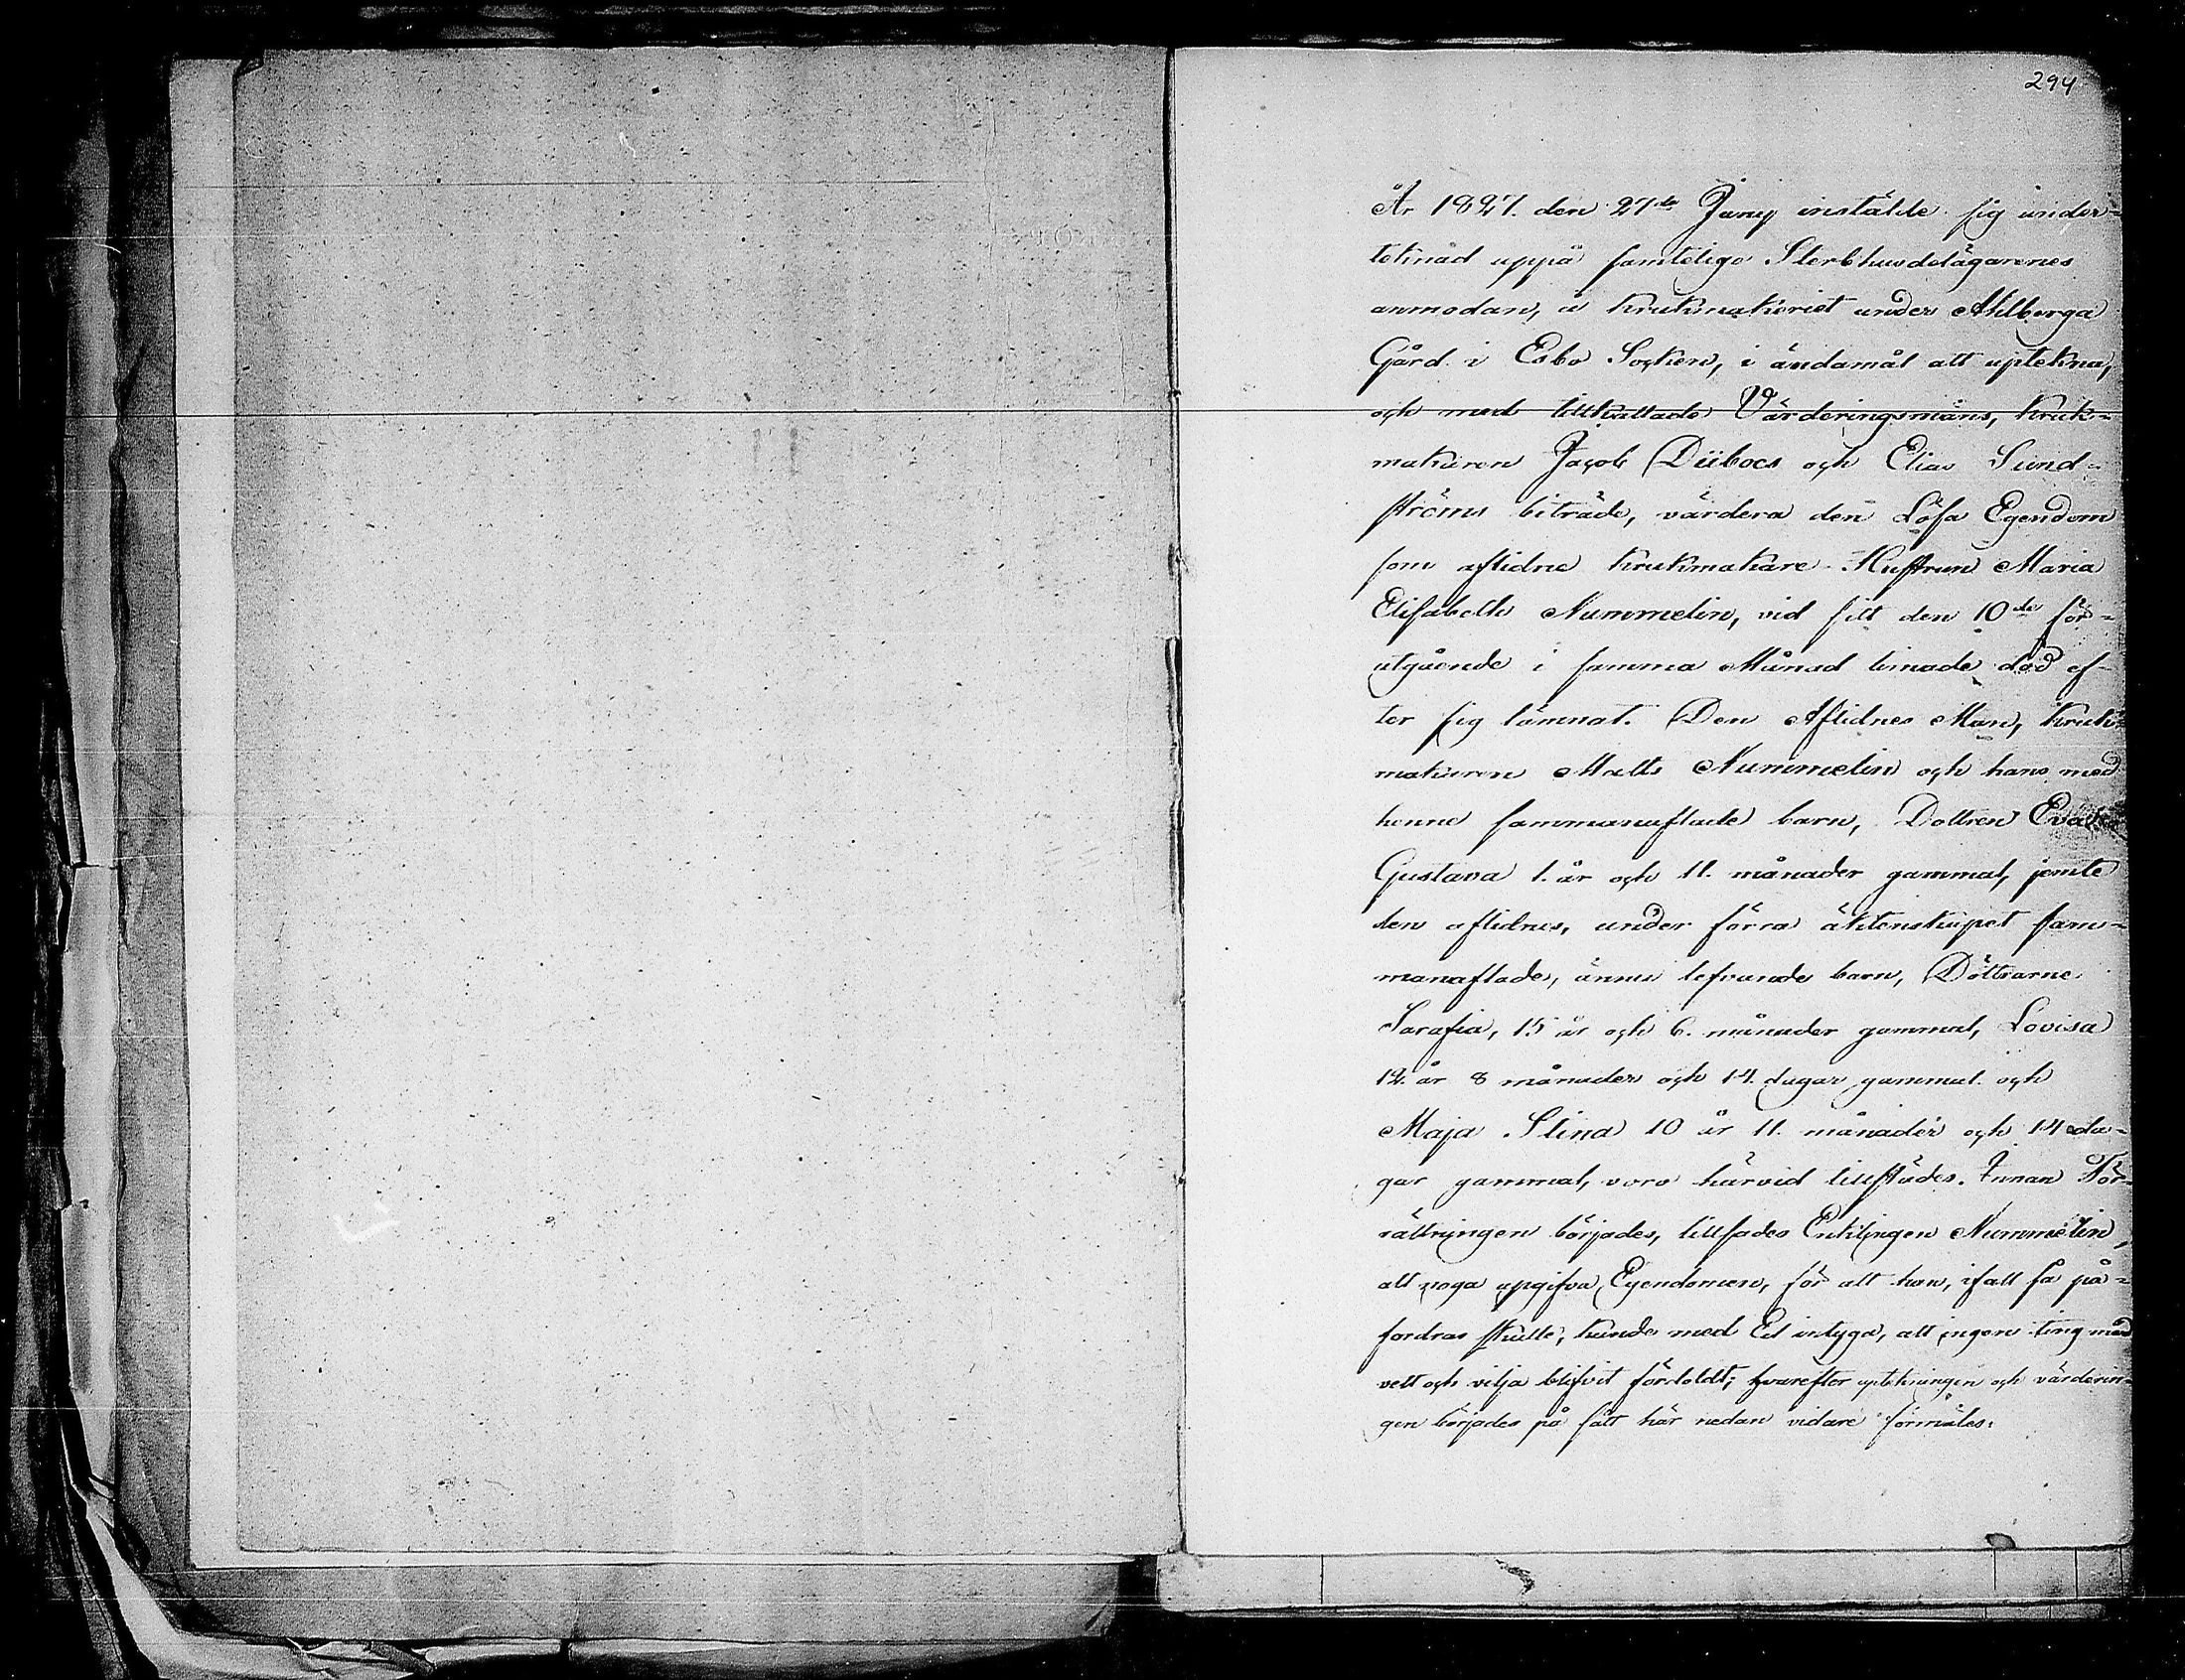 294
År 1827. den 27de Juny instälde sig under-
teknad uppå samtelige Sterbhusdelägarenes
anmodan, å Krukmakeriet under Ahlberga
Gård i Esbo Socken, i ändamål att uptekna,
och med tillkallade Värderingsmäns, Kruk-
makaren Jacob och Elias Sund-
ströms biträde, värdera den Lösa Egendom
som aflidne Krukmakare Hustrun Maria
Elisabeth Nummelin, vid sitt den 10de för-
utgående i samma Månad timade död ef-
ter sig lämnat. Den Aflidnes Man, Kruk-
makaren Matts Nummelin och hans med
henne sammanaflade barn, Dottren Eva
Gustava 1. år och 11. månader gammal, jemte
den aflidnes, under förra äktenskapet sam-
manaflade, ännu lefvande barn, Döttrarne
Sarafia, 15 år och 6. månader gammal, Lovisa
12. år 8 månader och 14. dagar gammal. och
Maja Stina 10 år 11. månader och 14 da-
gar gammal, voro härvid tillstädes. Innan För-
rättningen börjades, tillsades Enklingen Nummelin,
att noga upgifva Egendomen, för att han, ifall så på-
fordras skulle, kunde med Ed intyga, att ingen ting med
vett och vilja blifvit fördoldt; hvarefter uptekningen och värderin-
gen börjades på sätt här nedan vidare förmäles: